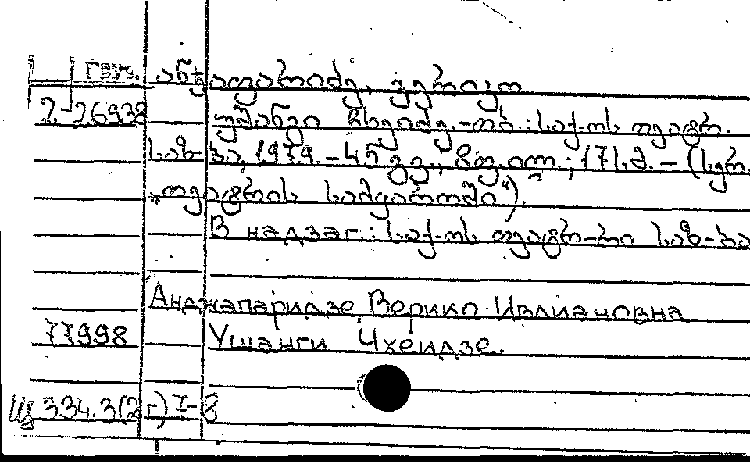 груз. ანჯაფარიძე, ვერიკო
2-26938 უშანგი ჩხეიძე.-თბ.: საქ-ოს თეატრ.
საზ-ბა, 1979.-45 გვ., 8 ფოტ.; 17 სმ.-(სერ.
„თეატრის სამყაროში“).
В надзаг.: საქ-ოს თეატრ-რი საზ-ბა
Анджапаридзе, Верико Ивлиановна
77998 Ушанги Чхеидзе.
Щ 334.3(2г)7-8